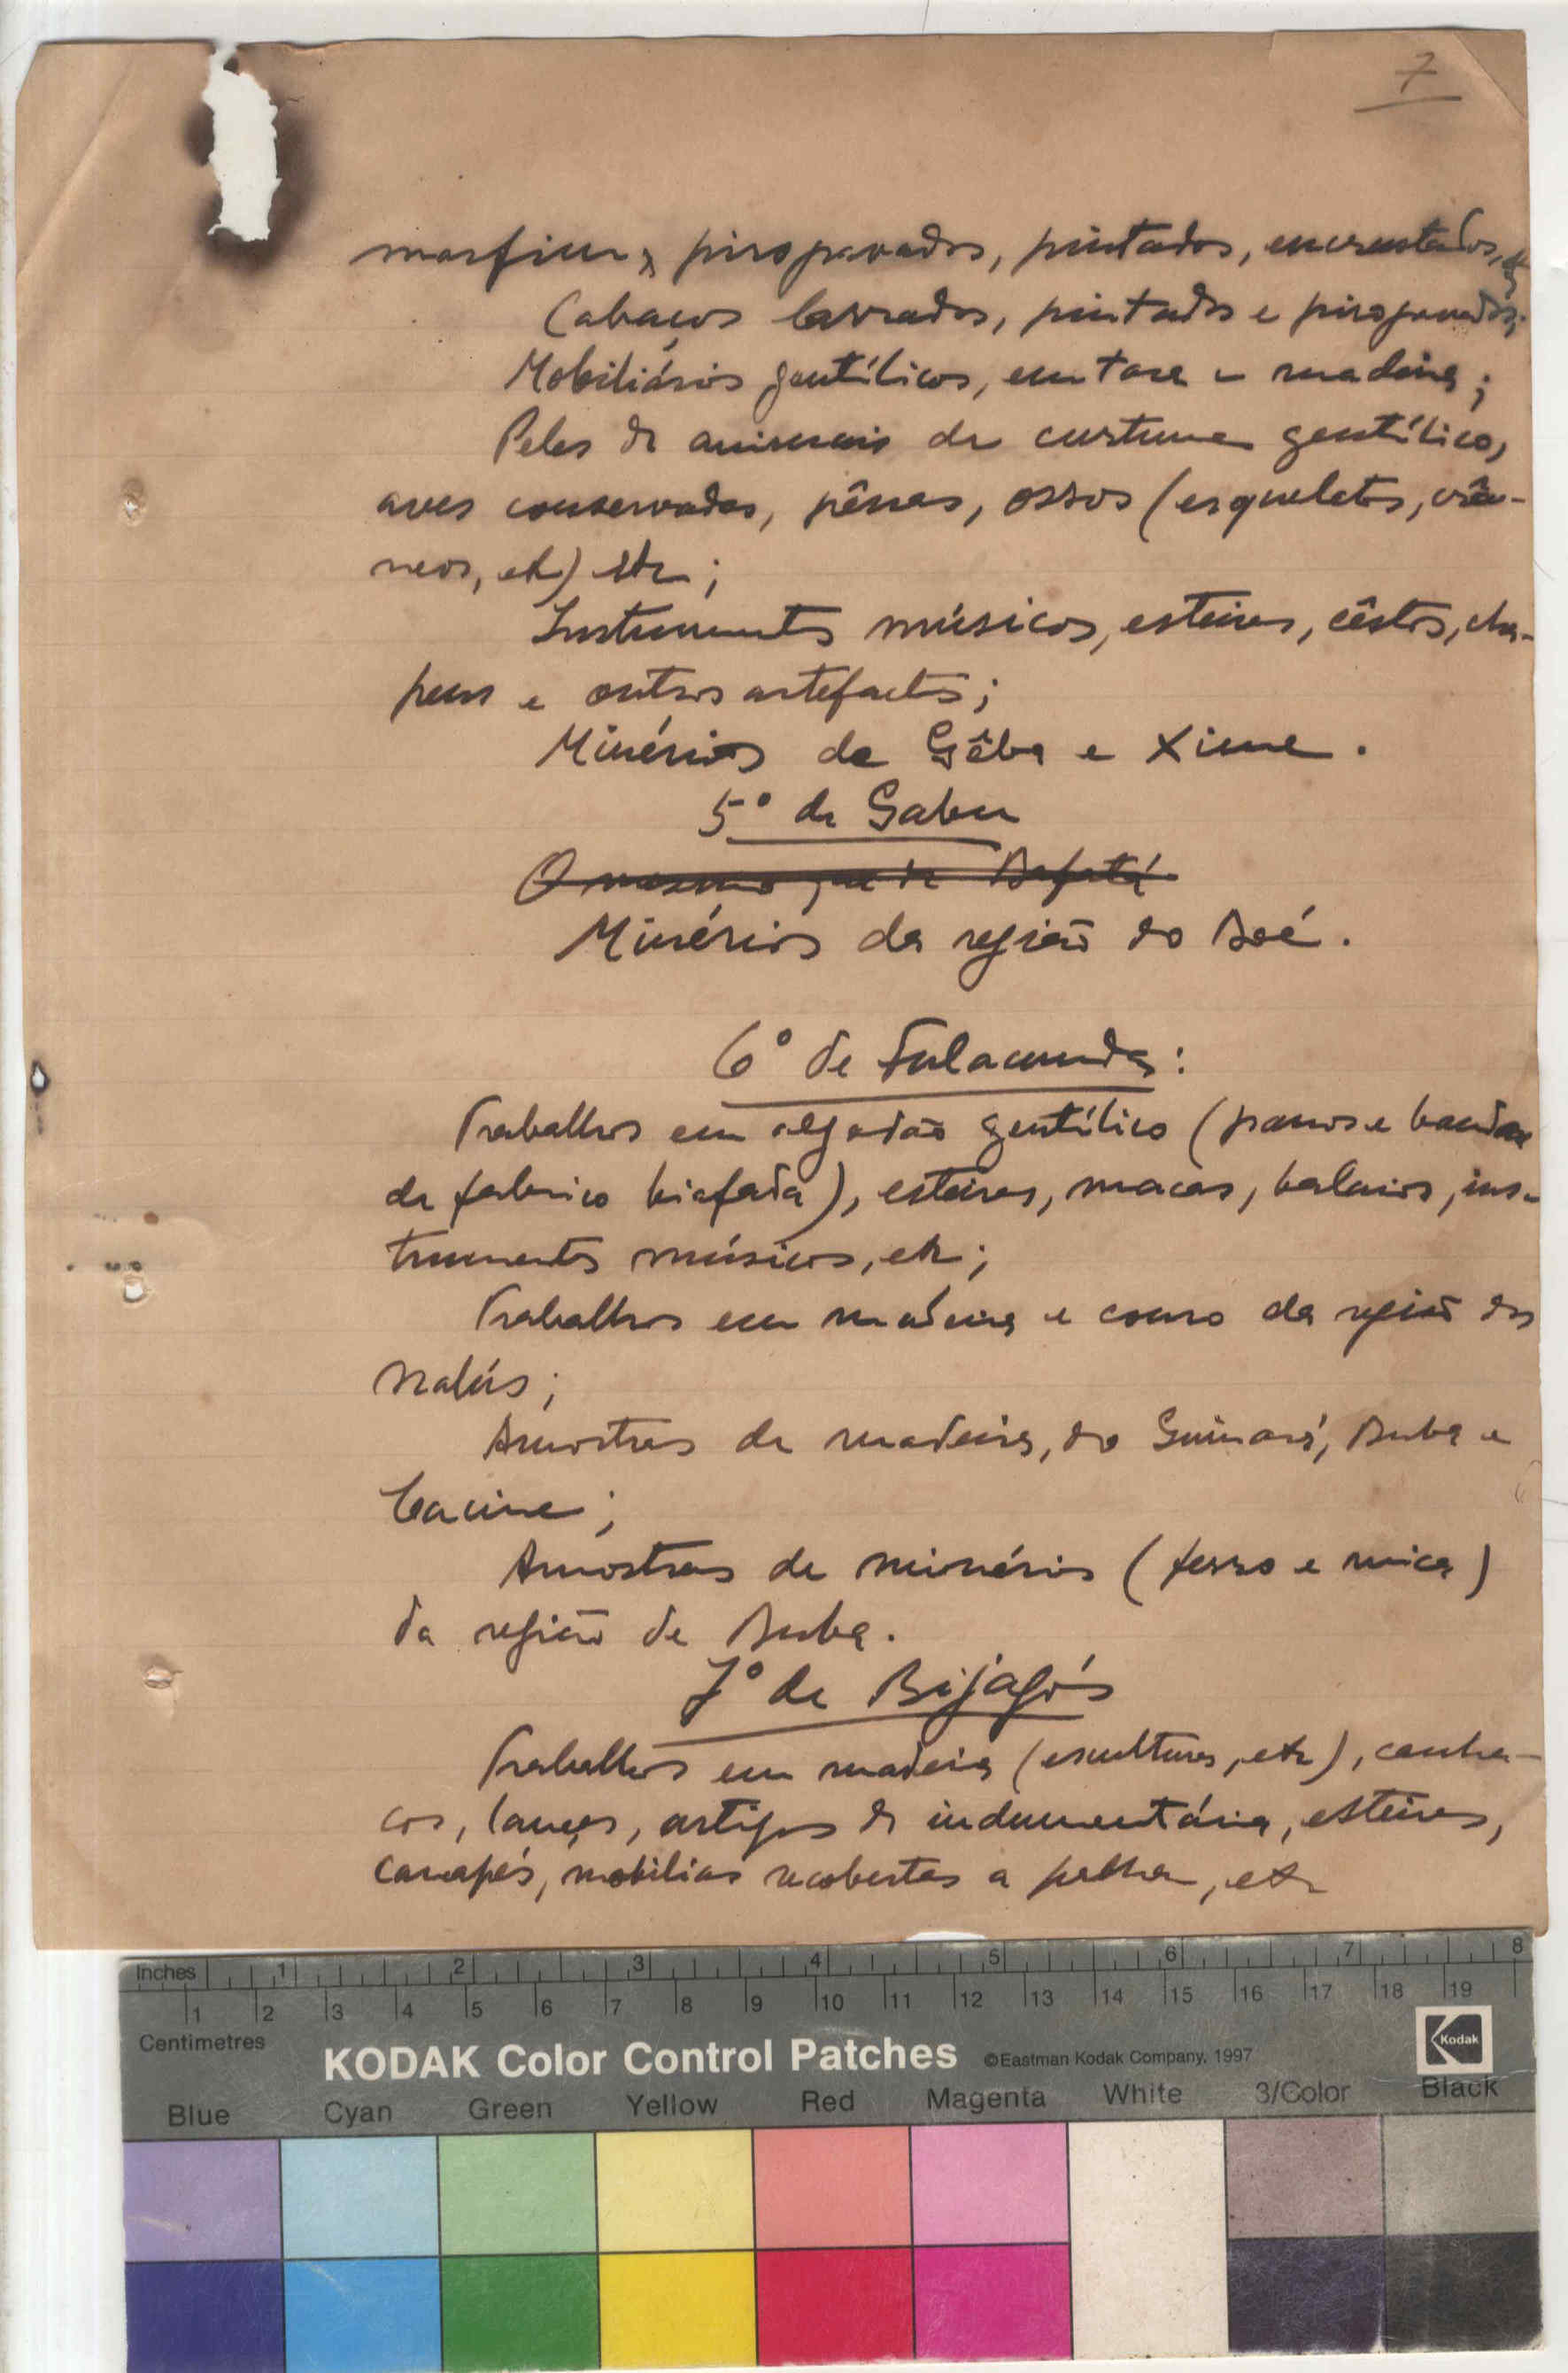 7
marfim, pirogravados, pintados, encrustados, etc
Cabaços lavrados, pintados e pirogravados;
Mobiliários gentílicos, em tara e madeira;
Peles de animais de costume gentílico,
aves conservadas, pênas, ossos (esqueletos, crâ-
neos, etc) etc;
Instrumentos músicos, esteiras, cêstos, cha-
peus e outros artefactos;
Minérios de Gêba e Xime.
5º de Gabu
O mesmo que de Bafatá
Minérios da região do Boé.
6º de Fulacunda:
Trabalhos em algodão gentílico (panos e bandas
de fabrico biafada), esteiras, macas, balaios, ins-
trumentos músicos, etc;
Trabalhos em madeira e couro da região dos
Nalús;
Amostras de madeira, do Guinará, Buba e
Cacine;
Amostras de minérios (ferro e mica)
da região de Buba.
7º de Bijagós
Trabalhos em madeira (esculturas, etc), canha-
cos, lanças, artigos de indumentária, esteiras,
canapés, mobilias recobertas a palha, etc
Inches 1 2 3 4 5 6 7 8
1 2 3 4 5 6 7 8 9 10 11 12 13 14 15 16 17 18 19
Centimetres
KODAK Color Control Patches ©Eastman Kodak Company, 1997 Kodak
Blue Cyan Green Yellow Red Magenta White 3/Color Black